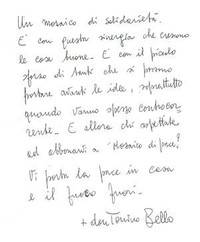 Un mosaico di solidarietà.
E' con questa sinergia che crescono
le cose buone. E' con il piccolo
sforzo di tanti che si possono
portare avanti le idee, soprattutto
quando vanno spesso controcor-
rente. E allora chi aspettate
ad abbonarvi a "Mosaico di pace"?
Vi porta la pace in casa
e il fuoco fuori.
+ don Tonino Bello